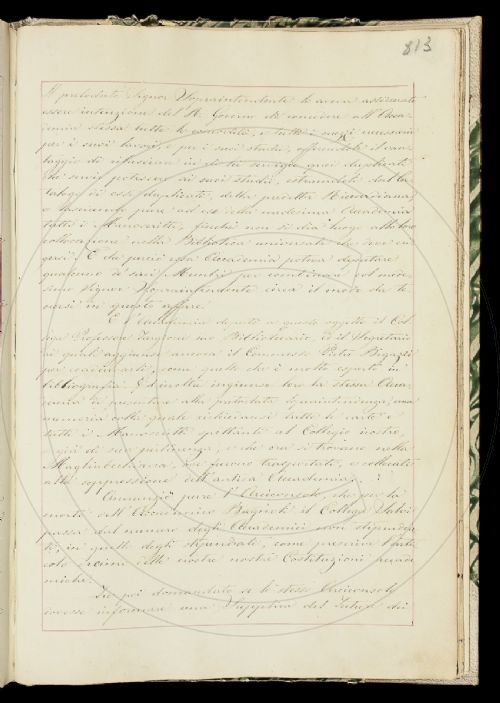 813
Il prelodato Signor Sopraintendente le aveva assicurato
essere intenzione del R. Governo di concedere all'Acca-
demia stessa tutte le comodità, e tutti i mezzi necessarii
per i suoi lavori e per i suoi studii, offrendole il van-
taggio di rifornirsi di quei duplicati
che sarii potessero ai suoi studii, estraendoli dal Ca-
talogo di essi duplicati, della predetta Riccardiana,
e lasciando pure ad essa medesima Accademia
tutti i Manoscritti, finchè non si dia luogo alla loro
collocazione nella Biblioteca universale che deve eri-
gersi. E che perciò essa Accademia poteva deputare
qualcuno de' suoi Membri per combinare col mede-
simo Signor Sopraintendente circa il modo da te-
nersi in questo affare.
E l'Accademia deputò a questo oggetto il Col-
lega Professore Bibliotecario, ed il Segretario
ai quali aggiunse ancora il Commesso Pietro Bigazzi
per coadiuvarli, come quello che è molto esperto in
bibliografia. E di inoltre ingiunse loro la stessa Acca-
demia di presentare alla prelodata Sopraintendenza, una
memoria colla quale richiedansi tutte le carte e
tutti i Manoscritti spettanti al Collegio nostro,
già di sua pertinenza, e che ora si trovano nella
Magliabechiana, ove furono trasportati, e collocati
alla soppressione dell'antica Accademia.
Annunziò pure l'Arciconsolo, che per la
morte dell'Accademico Bagnoli il Collega
passa dal numero degli Accademici non stipendia-
ti, in quello degli stipendiati, come prescrive l'arti-
colo delle nostre Costituzioni accade-
miche.
Fu poi domandato se lo stesso Arciconsolo
dovesse informare una del dei